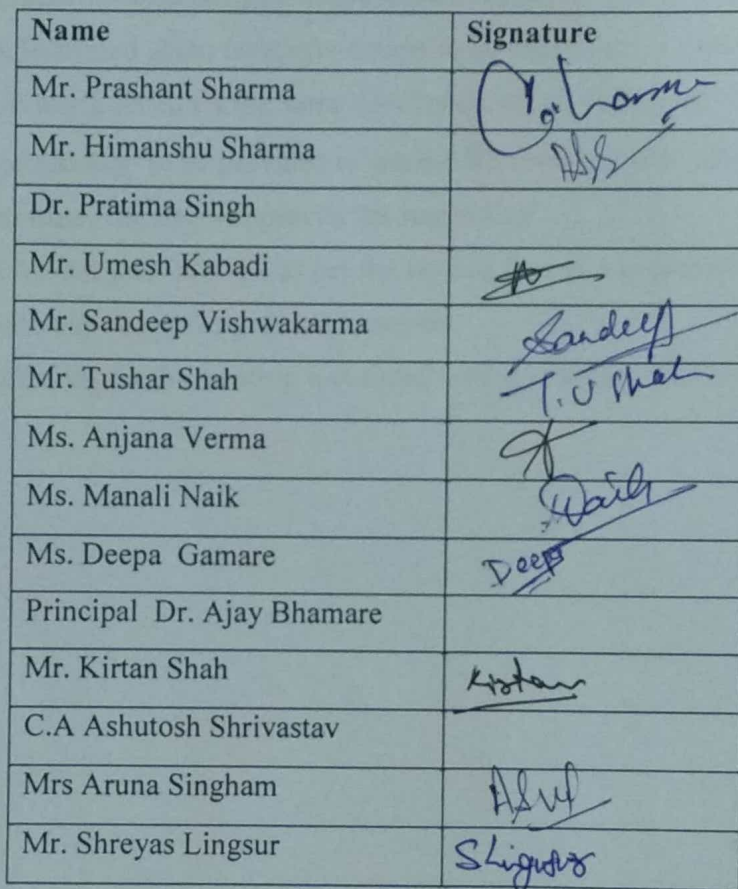 Name Signature
Mr. Prashant Sharma
Mr. Himanshu Sharma
Dr. Pratima Singh
Mr. Umesh Kabadi
Mr. Sandeep Vishwakarma Sandeep
Mr. Tushar Shah T.U Shah
Ms. Anjana Verma
Ms. Manali Naik Naik
Ms. Deepa Gamare Deepa
Principal Dr. Ajay Bhamare
Mr. Kirtan Shah Kirtan
C.A Ashutosh Shrivastav
Mrs Aruna Singham
Mr. Shreyas Lingsur